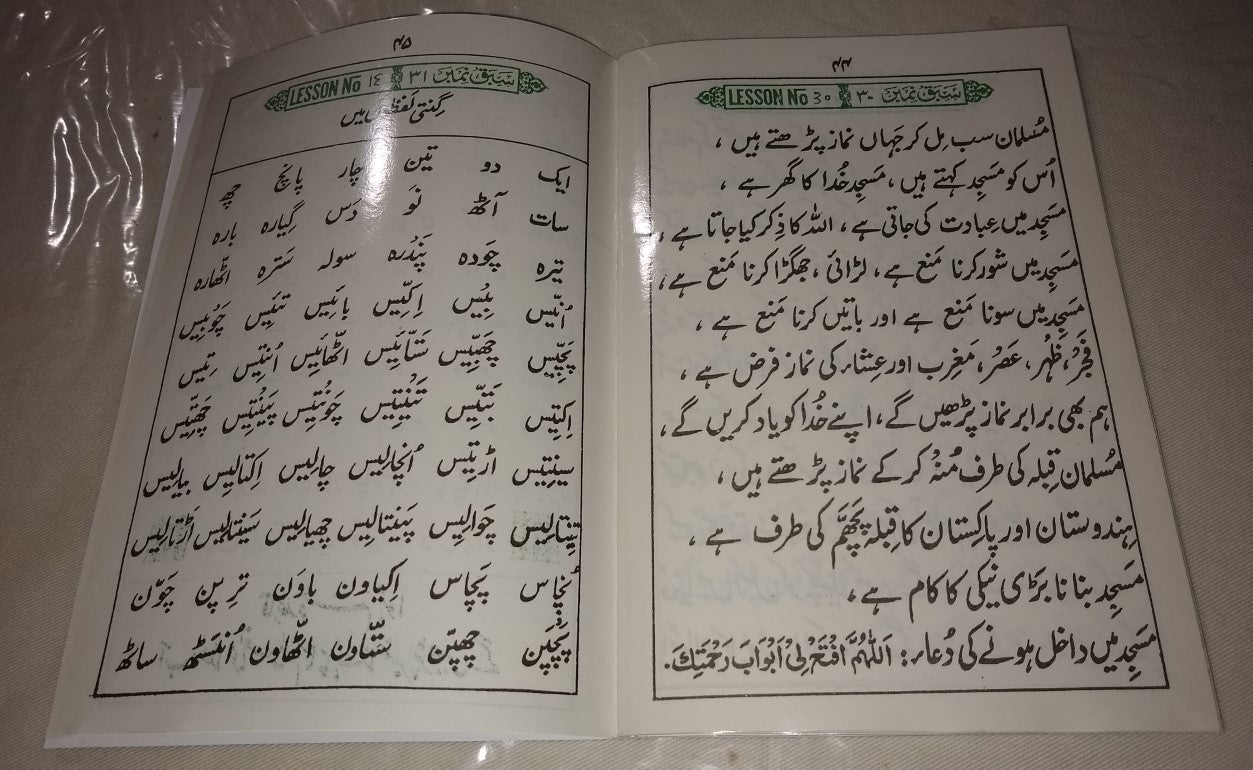 ۴۴
LESSON No 30 سبق نمبر ۳۰
مُسلمان سب مِل کر جہاں نماز پڑھتے ہیں ،
اُس کو مَسجِد کہتے ہیں ، مَسجِد خُدا کا گھر ہے ،
مَسجِد میں عِبادت کی جاتی ہے ، اللہ کا ذِکر کیا جاتا ہے ،
مَسجِد میں شور کرنا مَنع ہے ، لڑائی ، جھگڑا کرنا مَنع ہے ،
مَسجِد میں سونا مَنع ہے اور باتیں کرنا مَنع ہے ،
فَجَرْ ، ظُہر ، عَصْر ، مَغرِب اور عِشاء کی نماز فرض ہے ،
ہم بھی برابر نماز پڑھیں گے ، اپنے خُدا کو یاد کریں گے ،
مُسلمان قِبلہ کی طرف مُنہ کر کے نماز پڑھتے ہیں ،
ہِندوستان اور پاکِستان کا قِبلہ پَچَھّم کی طرف ہے ،
مَسجِد بنانا بَڑی نیکی کا کام ہے ،
مَسجِد میں داخل ہونے کی دُعاء : اَللّٰهُمَّ افْتَحْ لِیْ اَبْوَابَ رَحْمَتِكَ.
۴۵
LESSON No ١٤ سبق نمبر ۳۱
گِنتی لَفظوں میں
ایک دو تین چار پانچ چھ
سات آٹھ نَو دَس گیارہ بارہ
تیرہ چَودہ پَندْرہ سولہ سَترہ اٹّھارہ
اُنّیس بِیْس اِکّیس بائیس تئیس چَوبیس
پَچّیس چھبّیس ستّائیس اٹّھائیس اُنتیس تیس
اِکتیس بتّیس تَنْتیس چَونتیس پَینتیس چھتّیس
سینتیس اڑتیس اُنچالیس چالیس اِکتالیس بیالیس
تینتالیس چَوالیس پَینتالیس چھیالیس سَینتالیس اَڑتالیس
اُنچاس پَچاس اِکیاون باوَن ترِپن چَوّن
پَچْپَن چھپّن ستّاون اٹّھاون اُنسَٹھ ساٹھ